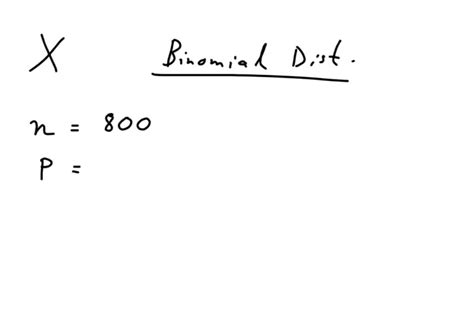 X Binomial Dist.
n = 800
P =